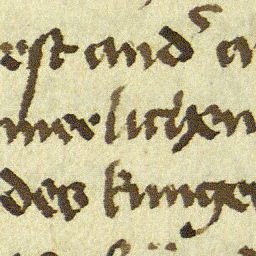 rst and̾ a
mer lichen
des kunge